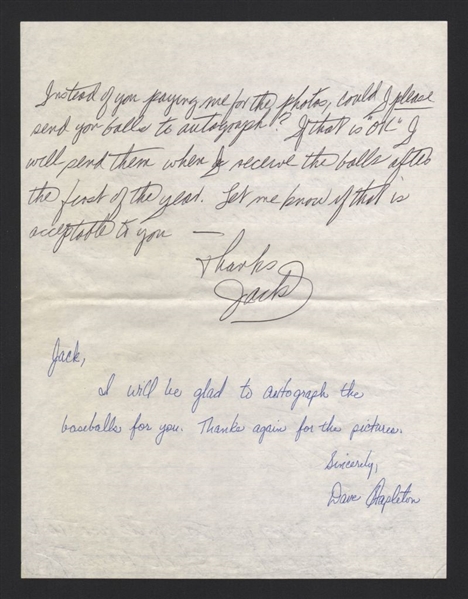 Instead of you paying me for the photos, could I please
send you balls to autograph? If that is "OK" I
will send them when I receive the balls after
the first of the year. Let me know if that is
acceptable to you —
Thanks
Jack
Jack,
I will be glad to autograph the
baseballs for you. Thanks again for the pictures.
Sincerely,
Dave Stapleton